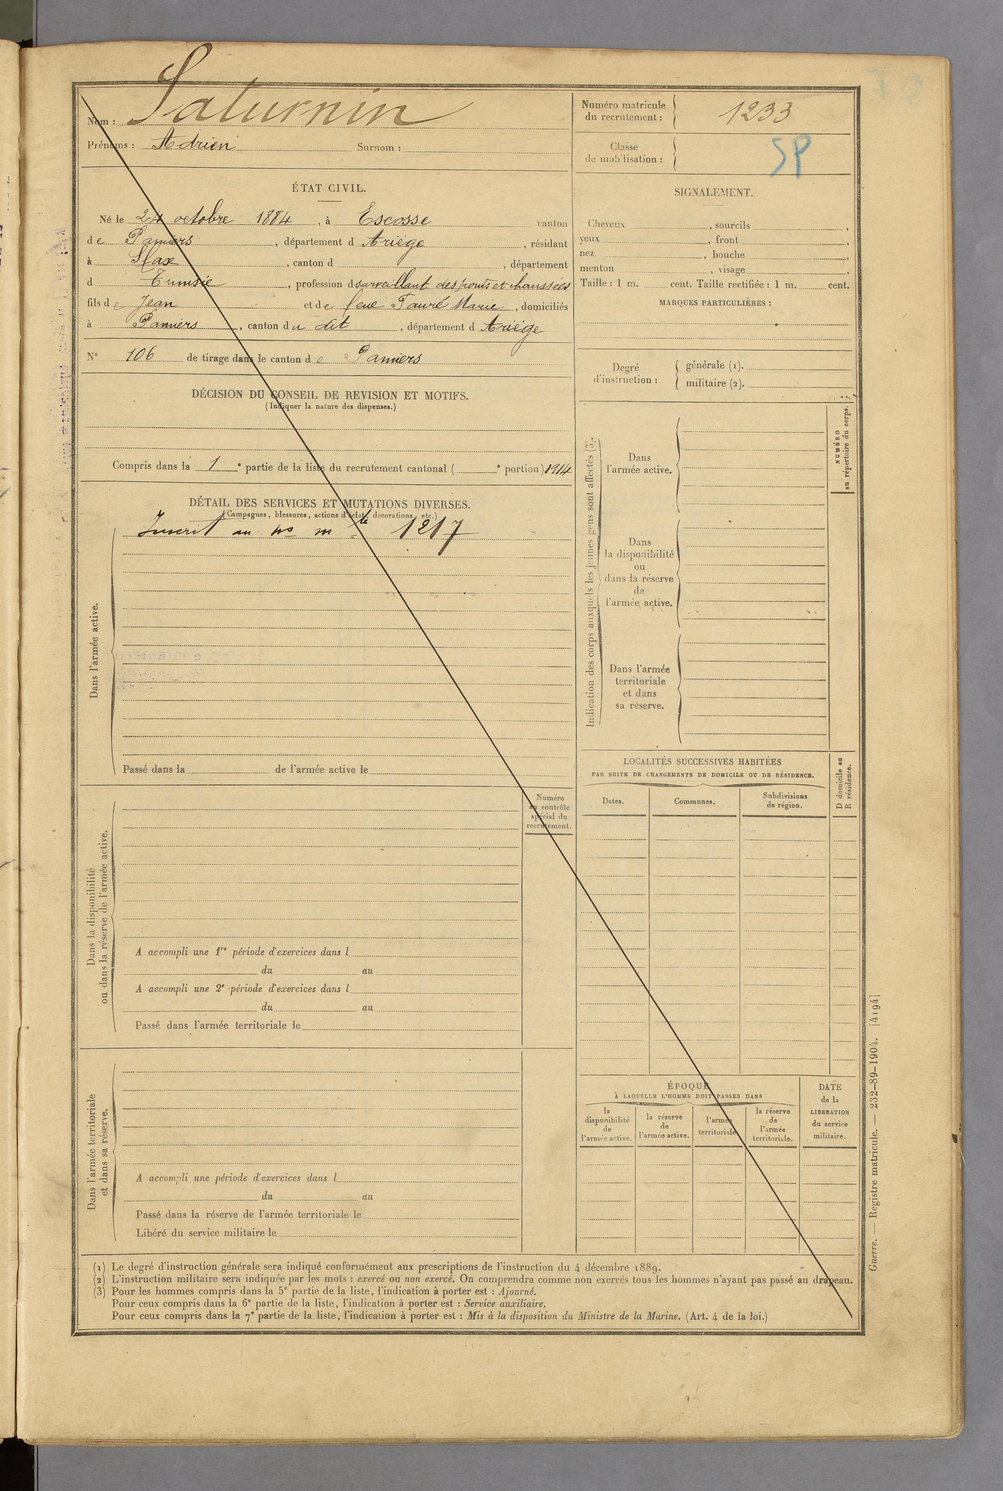 Nom : Saturnin
Prénoms : Adrien Surnom :
ÉTAT CIVIL.
Né le 24 octobre 1884, à Escosse canton
de Pamiers, département d Ariège, résidant
à Sfax, canton d , département
d Tunisie, profession d surveillant des ponts et chaussées
fils de Jean et de feue Fauré Marie, domiciliés
à Pamiers, canton du dit, département d Ariège
N° 106 de tirage dans le canton de Pamiers
DÉCISION DU CONSEIL DE REVISION ET MOTIFS.
(Indiquer la nature des dispenses.)
Compris dans la 1e partie de la liste du recrutement cantonal ( e portion) 1914
DÉTAIL DES SERVICES ET MUTATIONS DIVERSES.
(Campagnes, blessures, actions d'éclat, décorations, etc.)
Inscrit au no mle 1217
Dans l'armée active.
Passé dans la de l'armée active le
Numéro
au contrôle
spécial du
recrutement.
Dans la disponibilité
ou dans la réserve de l'armée active.
A accompli une 1re période d'exercices dans l
du au
A accompli une 2e période d'exercices dans l
du au
Passé dans l'armée territoriale le
Dans l'armée territoriale
et dans sa réserve.
A accompli une période d'exercices dans l
du au
Passé dans la réserve de l'armée territoriale le
Libéré du service militaire le
Numéro matricule
du recrutement : 1233
Classe
de mobilisation : SP
SIGNALEMENT.
Cheveux , sourcils ,
yeux , front ,
nez , bouche ,
menton , visage ,
Taille : 1 m. cent. Taille rectifiée : 1 m. cent.
MARQUES PARTICULIÈRES :
Degré
d'instruction :
générale (1).
militaire (2).
Indication des corps auxquels les jeunes gens sont affectés (3).
NUMÉRO
au répertoire du corps.
Dans
l'armée active.
Dans
la disponibilité
ou
dans la réserve
de
l'armée active.
Dans l'armée
territoriale
et dans
sa réserve.
LOCALITÉS SUCCESSIVES HABITÉES
PAR SUITE DE CHANGEMENTS DE DOMICILE OU DE RÉSIDENCE.
D domicile ou
R résidence.
Dates. Communes. Subdivisions
de région.
ÉPOQUE
À LAQUELLE L'HOMME DOIT PASSER DANS
la
disponibilité
de
l'armée active.
la réserve
de
l'armée active.
l'armée
territoriale.
la réserve
de
l'armée
territoriale.
DATE
de la
LIBÉRATION
du service
militaire.
(1) Le degré d'instruction générale sera indiqué conformément aux prescriptions de l'instruction du 4 décembre 1889.
(2) L'instruction militaire sera indiquée par les mots : exercé ou non exercé. On comprendra comme non exercés tous les hommes n'ayant pas passé au drapeau.
(3) Pour les hommes compris dans la 5e partie de la liste, l'indication à porter est : Ajourné.
Pour ceux compris dans la 6e partie de la liste, l'indication à porter est : Service auxiliaire.
Pour ceux compris dans la 7e partie de la liste, l'indication à porter est : Mis à la disposition du Ministre de la Marine. (Art. 4 de la loi.)
Guerre. — Registre matricule. — 232-89-1904. [4194]